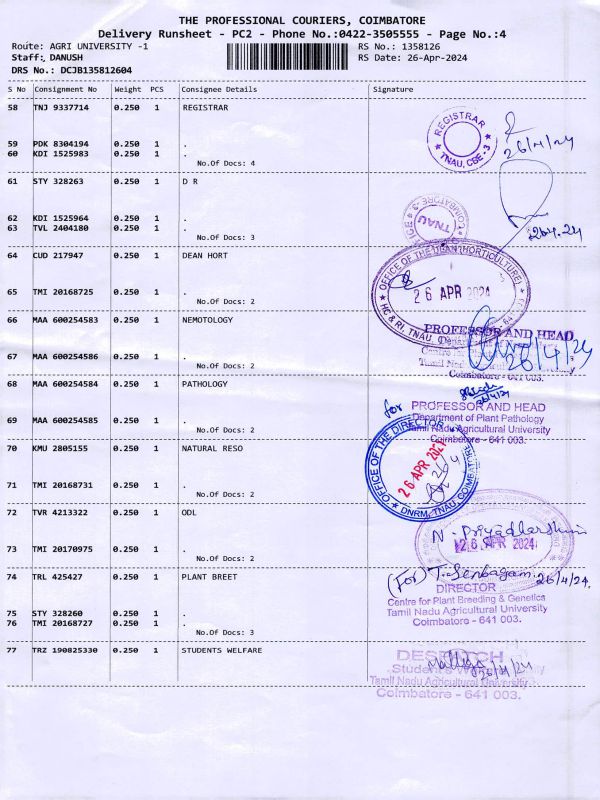 THE PROFESSIONAL COURIERS, COIMBATORE
Delivery Runsheet - PC2 - Phone No.:0422-3505555 - Page No.:4
Route: AGRI UNIVERSITY -1
RS No.: 1358126
Staff: DANUSH
RS Date: 26-Apr-2024
DRS No.: DCJB135812604
S No Consignment No Weight PCS Consignee Details Signature
58 TNJ 9337714 0.250 1 REGISTRAR
REGISTRAR
TNAU, CBE - 3
26/4/24
59 PDK 8304194 0.250 1 .
60 KDI 1525983 0.250 1 .
No.Of Docs: 4
61 STY 328263 0.250 1 D R
TNAU
COIMBATORE - 3
62 KDI 1525964 0.250 1 .
63 TVL 2404180 0.250 1 .
No.Of Docs: 3
64 CUD 217947 0.250 1 DEAN HORT
OFFICE OF THE DEAN (HORTICULTURE)
26 APR 2024
HC & RI, TNAU
65 TMI 20168725 0.250 1 .
No.Of Docs: 2
66 MAA 600254583 0.250 1 NEMOTOLOGY
PROFESSOR AND HEAD
26/4/24
Coimbatore - 641 003.
67 MAA 600254586 0.250 1 .
No.Of Docs: 2
68 MAA 600254584 0.250 1 PATHOLOGY
for
PROFESSOR AND HEAD
Department of Plant Pathology
Tamil Nadu Agricultural University
Coimbatore - 641 003.
69 MAA 600254585 0.250 1 .
No.Of Docs: 2
70 KMU 2805155 0.250 1 NATURAL RESO
OFFICE OF THE DIRECTOR
26 APR 2024
DNRM, TNAU, COIMBATORE
71 TMI 20168731 0.250 1 .
No.Of Docs: 2
72 TVR 4213322 0.250 1 ODL
N. Priyadharshini
26 APR 2024
73 TMI 20170975 0.250 1 .
No.Of Docs: 2
74 TRL 425427 0.250 1 PLANT BREET
(For) T. Senbagam 26/4/24.
DIRECTOR
Centre for Plant Breeding & Genetics
Tamil Nadu Agricultural University
Coimbatore - 641 003.
75 STY 328260 0.250 1 .
76 TMI 20168727 0.250 1 .
No.Of Docs: 3
77 TRZ 190825330 0.250 1 STUDENTS WELFARE
DESPATCH
Tamil Nadu Agricultural University
Coimbatore - 641 003.